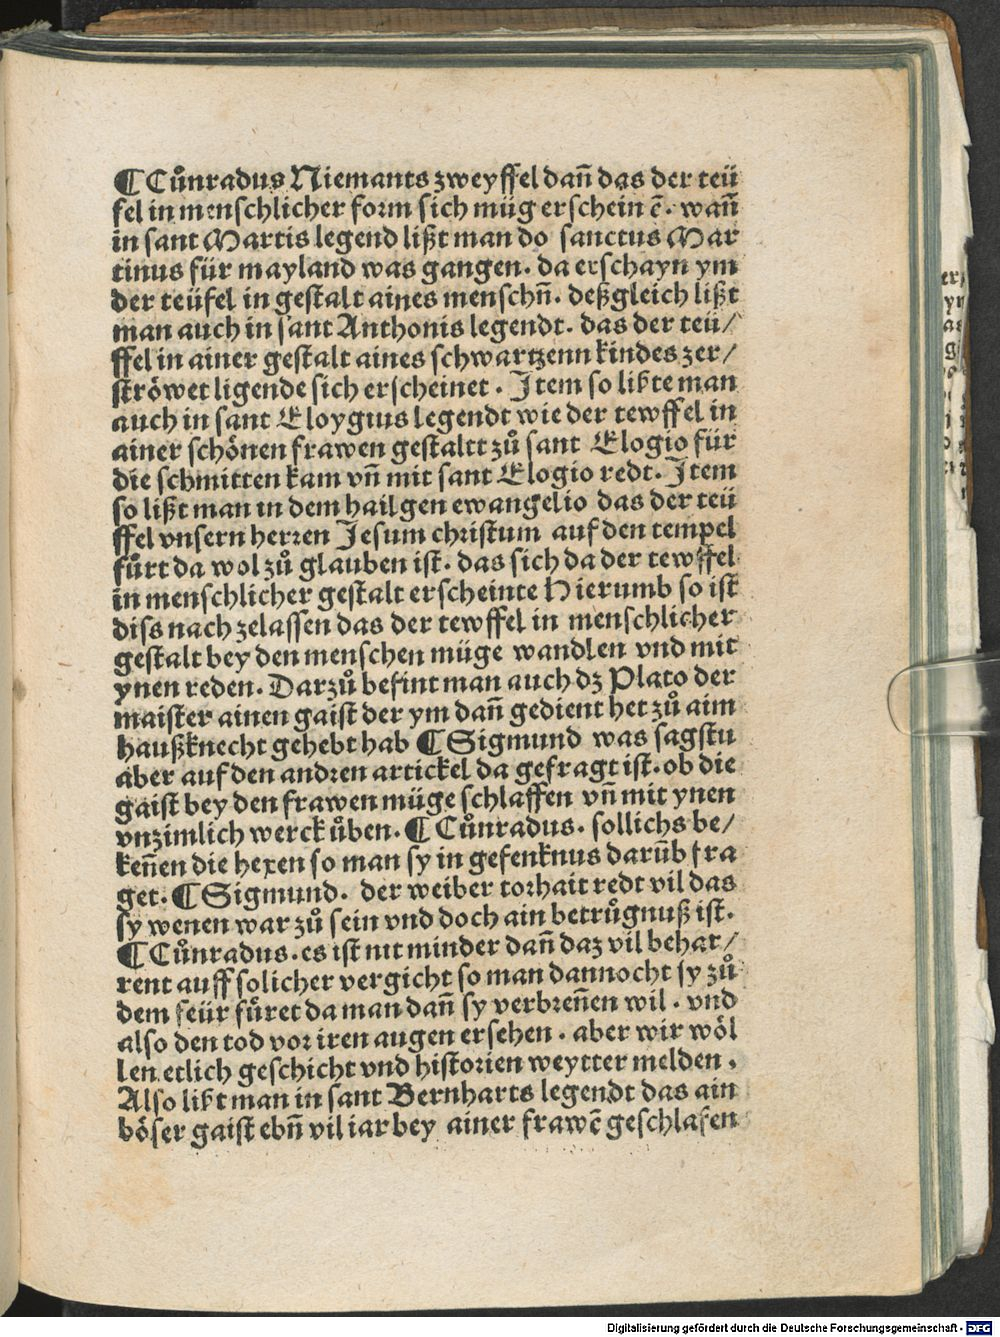 ¶ Cůnradus Niemants zweyffel dañ das der teü
fel in menschlicher form sich müg erscheinẽ. wañ
in sant Martis legend lißt man do sanctus Mar
tinus für mayland was gangen. da erschayn ym
der teüfel in gestalt aines menschñ. deßgleich lißt
man auch in sant Anthonis legendt. das der teü/
ffel in ainer gestalt aines schwartzenn kindes zer/
ströwet ligende sich erscheinet. Item so lißte man
auch in sant Eloygius legendt wie der tewffel in
ainer schönen frawen gestaltt zů sant Elogio für
die schmitten kam vñ mit sant Elogio redt. Item
so lißt man in dem hailgen ewangelio das der teü
ffel vnsern herren Jesum christum auf den tempel
fůrt da wol zů glauben ist. das sich da der tewffel
in menschlicher gestalt erscheinte Hierumb so ist
diss nach zelassen das der tewffel in menschlicher
gestalt bey den menschen müge wandlen vnd mit
ynen reden. Darzů befint man auch dz Plato der
maister ainen gaist der ym dañ gedient het zů aim
haußknecht gehebt hab ¶ Sigmund was sagstu
aber auf den andren artickel da gefragt ist. ob die
gaist bey den frawen müge schlaffen vñ mit ynen
vnzimlich werck ůben. ¶ Cůnradus. sollichs be/
keñen die hexen so man sy in gefenknus darũb fra
get. ¶ Sigmund. der weiber torhait redt vil das
sy wenen war zů sein vnd doch ain betrůgnuß ist.
¶ Cůnradus. es ist nit minder dañ daz vil behar/
rent auff solicher vergicht so man dannocht sy zů
dem feür fůret da man dañ sy verbreñen wil. vnd
also den tod vor iren augen ersehen. aber wir wöl
len etlich geschicht vnd historien weytter melden.
Also lißt man in sant Bernharts legendt das ain
böser gaist ebñ vil iar bey ainer frawẽ geschlafen
Digitalisierung gefördert durch die Deutsche Forschungsgemeinschaft - DFG